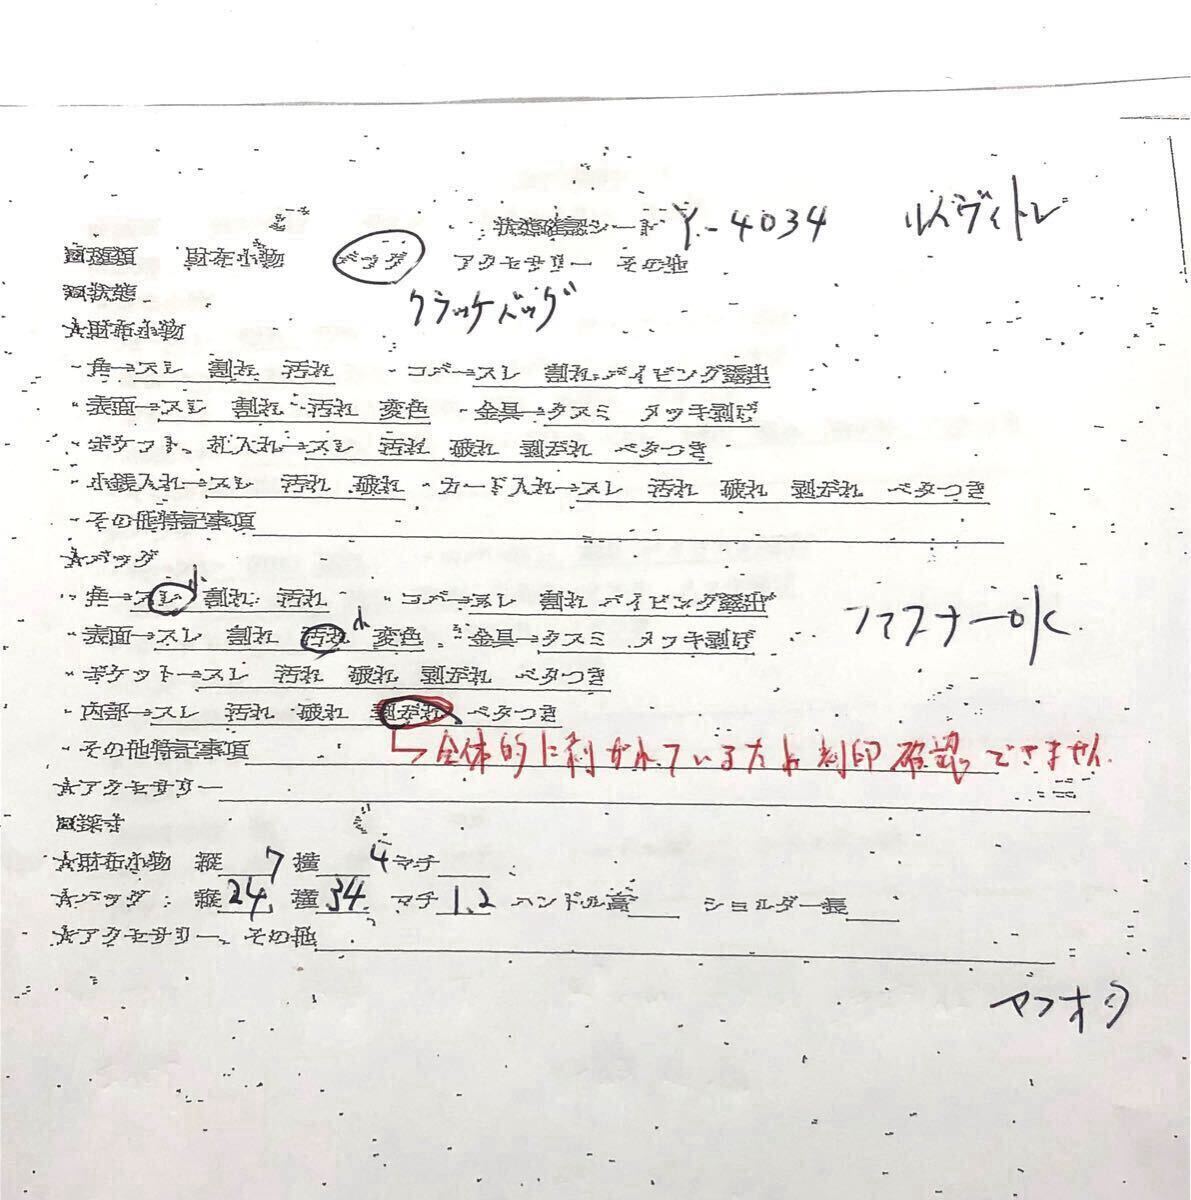 状態確認シート Y-4034 ルイヴィトン
回種類 財布小物 バッグ アクセサリー その他
クラッチバッグ
回状態
☆財布小物
・角→スレ 割れ 汚れ ・コバ→スレ 割れ パイピング露出
・表面→スレ 割れ 汚れ 変色 ・金具→クスミ メッキ剥げ
・ポケット、札入れ→スレ 汚れ 破れ 剥がれ ベタつき
・小銭入れ→スレ 汚れ 破れ ・カード入れ→スレ 汚れ 破れ 剥がれ ベタつき
・その他特記事項
☆バッグ
・角→スレ小 割れ 汚れ ・コバ→スレ 割れ パイピング露出
・表面→スレ 割れ 汚れ小 変色 ・金具→クスミ メッキ剥げ
ファスナーok
・ポケット→スレ 汚れ 破れ 剥がれ ベタつき
・内部→スレ 汚れ 破れ 剥がれ ベタつき
・その他特記事項
→全体的に剥がれているため刻印確認できません。
☆アクセサリー
回採寸
☆財布小物 縦 7 横 4 マチ
☆バッグ:縦 24 横 34 マチ 1.2 ハンドル高 ショルダー長
☆アクセサリー、その他
ヤフオク